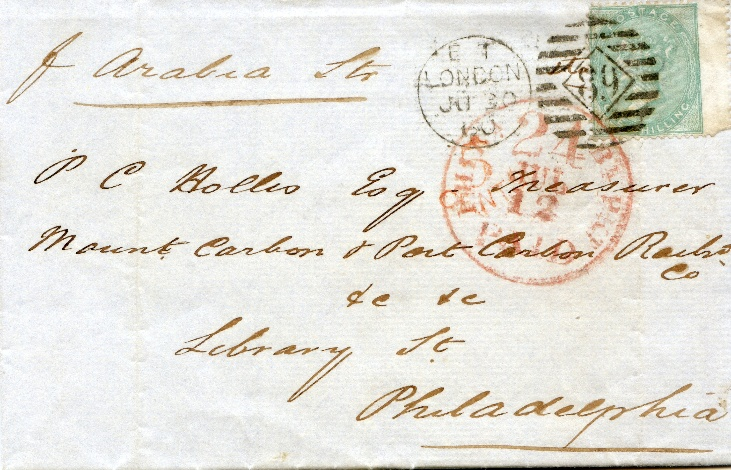 p Arabia Str
E T
LONDON
JU 30
60
69
POSTAGE
SHILLING
24
5
12
PAID
P C Hollis Esq Treasurer
Mount Carbon & Port Carbon Railrd
Co
&c &c
Library St
Philadelphia